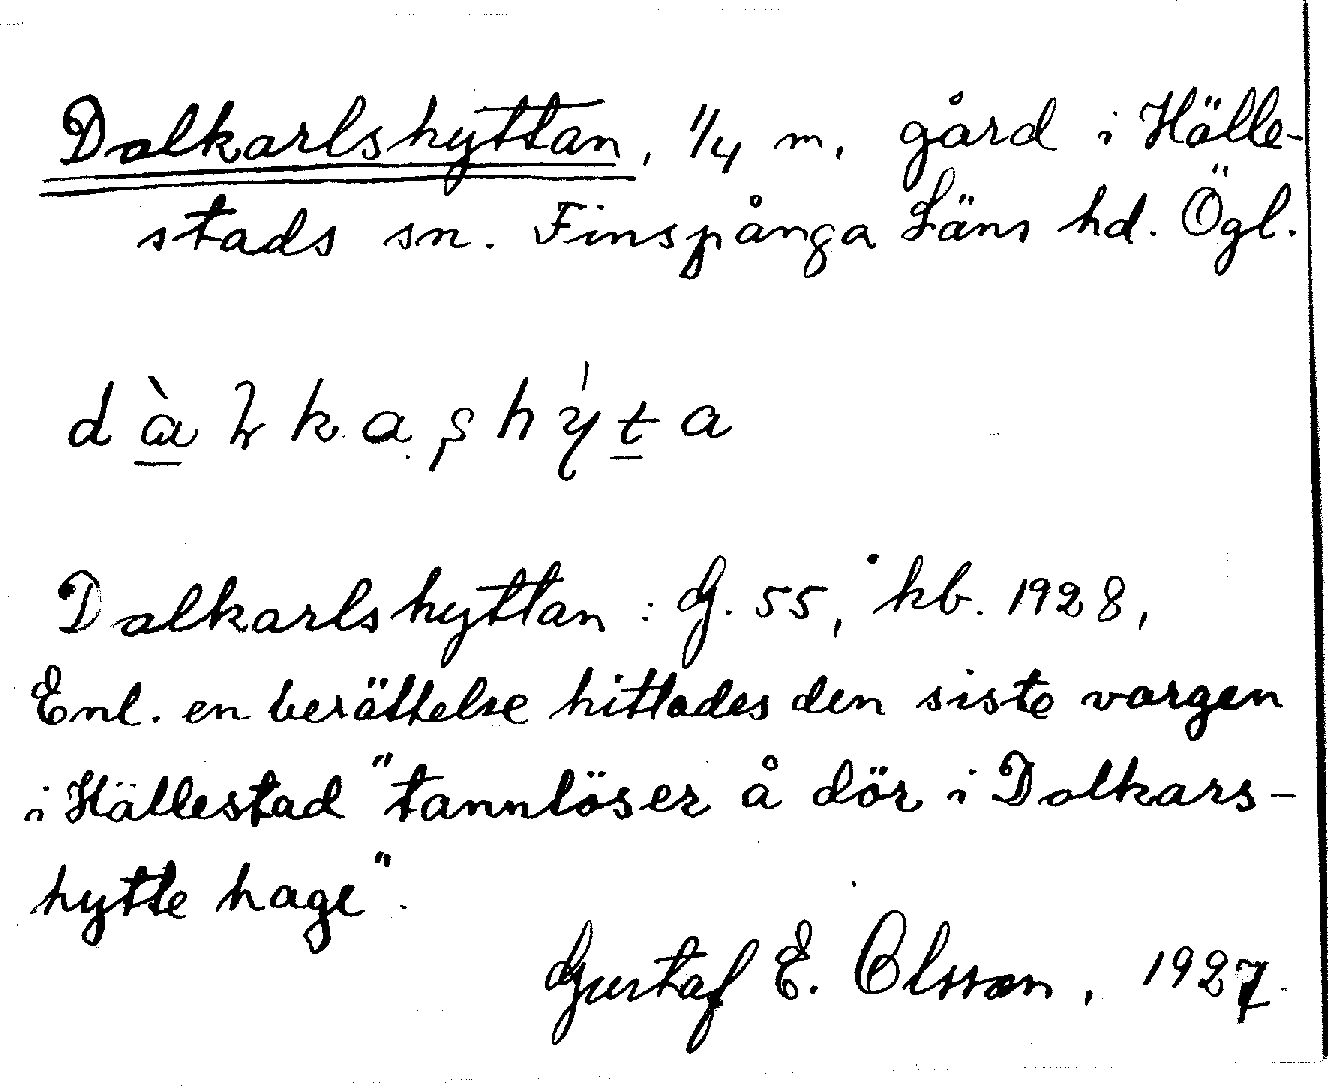 Dalkarlshyttan, 1/4 m, gård i Hälle-
stads sn. Finspånga Läns hd. Ögl.
Dalkarlshyttan : G. 55, kb. 1928,
Enl. en berättelse hittades den siste vargen
i Hällestad "tannlöser å dör i Dalkars-
hytte hage".
Gustaf E. Olsson, 1927